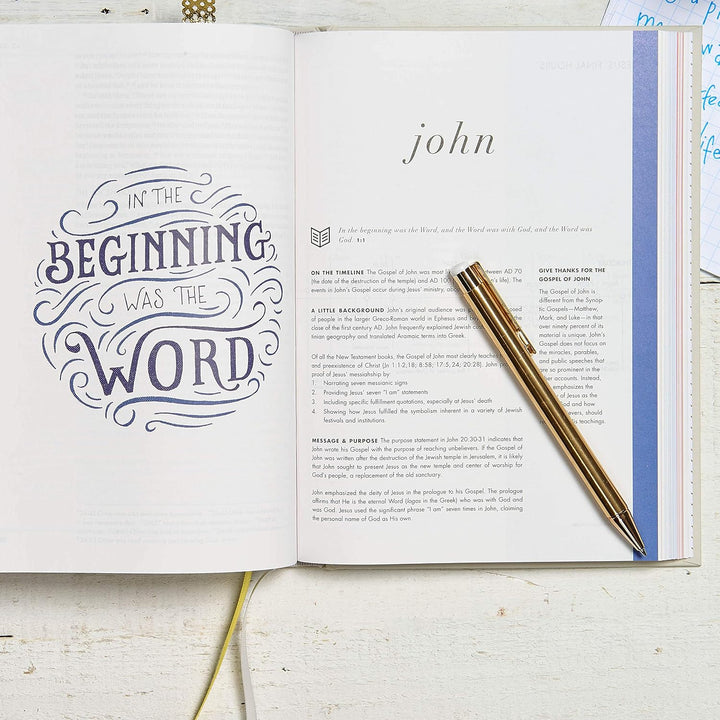 IN THE
BEGINNING
WAS THE
WORD
JESUS' FINAL HOURS
john
In the beginning was the Word, and the Word was with God, and the Word was
God. 1:1
ON THE TIMELINE The Gospel of John was most between AD 70
(the date of the destruction of the temple) and AD 10 life). The
events in John's Gospel occur during Jesus' ministry,
A LITTLE BACKGROUND John's original audience was posed
of people in the larger Greco-Roman world in Ephesus and
close of the first century AD. John frequently explained Jewish
tinian geography and translated Aramaic terms into Greek.
Of all the New Testament books, the Gospel of John most clearly teaches
and preexistence of Christ (Jn 1:1-2,18; 8:58; 17:5,24; 20:28). John
proof of Jesus' messiahship by:
1. Narrating seven messianic signs
2. Providing Jesus' seven "I am" statements
3. Including specific fulfillment quotations, especially at Jesus' death
4. Showing how Jesus fulfilled the symbolism inherent in a variety of Jewish
festivals and institutions.
MESSAGE & PURPOSE The purpose statement in John 20:30-31 indicates that
John wrote his Gospel with the purpose of reaching unbelievers. If the Gospel of
John was written after the destruction of the Jewish temple in Jerusalem, it is likely
that John sought to present Jesus as the new temple and center of worship for
God's people, a replacement of the old sanctuary.
John emphasized the deity of Jesus in the prologue to his Gospel. The prologue
affirms that He is the eternal Word (logos in the Greek) who was with God and
was God. Jesus used the significant phrase "I am" seven times in John, claiming
the personal name of God as His own.
GIVE THANKS FOR THE
GOSPEL OF JOHN
The Gospel of John is
different from the Synop-
tic Gospels—Matthew,
Mark, and Luke—in that
over ninety percent of its
material is unique. John's
Gospel does not focus on
the miracles, parables,
and public speeches that
are so prominent in the
other accounts. Instead,
emphasizes the
of Jesus as the
God and how
should
His teachings.